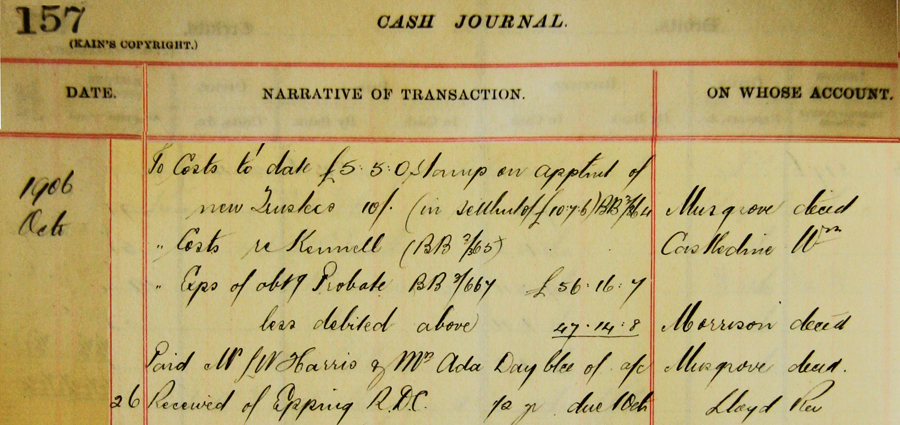 157
CASH JOURNAL.
(KAIN'S COPYRIGHT.)
DATE. NARRATIVE OF TRANSACTION. ON WHOSE ACCOUNT.
1906 To Costs to date £5.5.0 Stamp on apptmt of
Oct new Trustees 10/. (in settlmt of £10.7.6) BB 3/664 Musgrove decd
" Costs re Kennell (BB 3/665) Castledine Wm
" Exps of obtg Probate BB 3/667 £56.16.7
less debited above 47.14.8 Morrison decd
Paid Mr J W Harris & Mrs Ada Day blce of a/c Musgrove decd.
26 Received of Epping R.D.C. ½ yr due 10ch Lloyd Rev